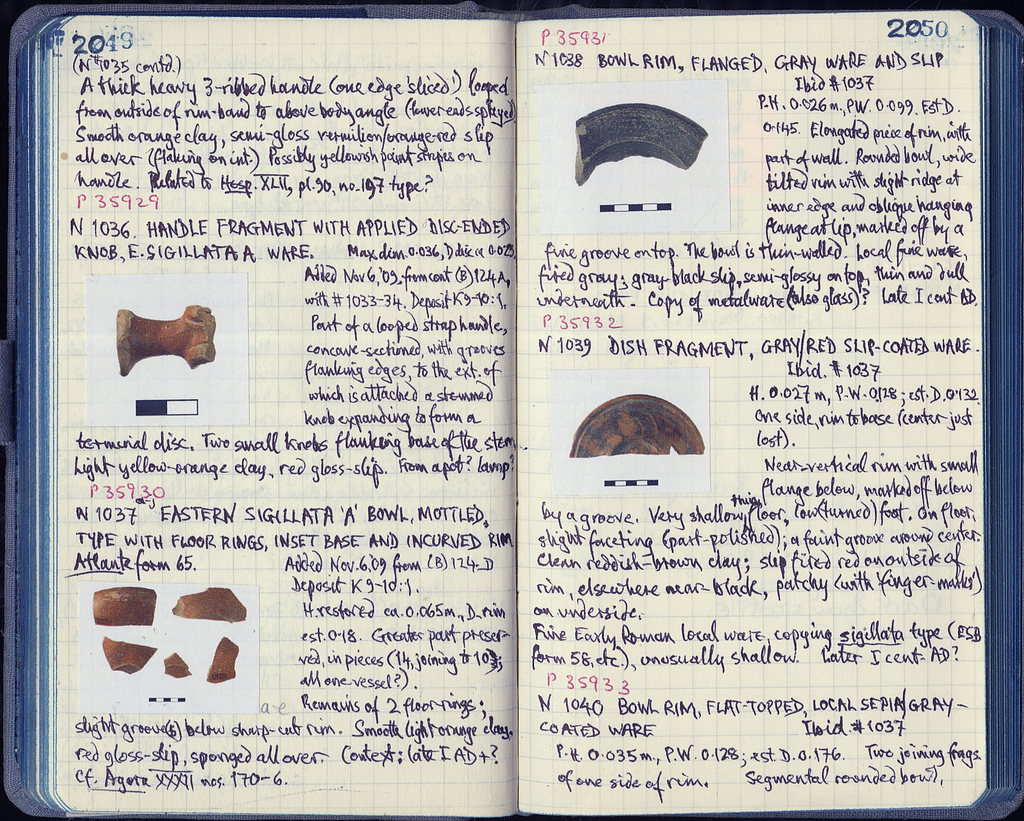 2049
(N#1035 contd.)
A thick heavy 3-ribbed handle (one edge 'sliced') looped
from outside of rim-band to above body angle (lower ends splayed)
Smooth orange clay, semi-gloss vermilion/orange-red slip
all over (flaking on int.) Possibly yellowish paint stripes on
handle. Related to Hesp. XLII, pl. 90, no. 197 type?
P 35929
N 1036. HANDLE FRAGMENT WITH APPLIED DISC-ENDED
KNOB, E. SIGILLATA A WARE. Max dim. 0.036, D disc ca 0.025
Added Nov 6, '09, from cont (B) 124A,
with # 1033-34. Deposit K 9-10:1.
Part of a looped strap handle,
concave-sectioned, with grooves
flanking edges, to the ext. of
which is attached a stemmed
knob expanding to form a
terminal disc. Two small knobs flanking base of the stem.
Light yellow-orange clay, red gloss-slip. From a pot? lamp?
P 35930
N 1037 a-j EASTERN SIGILLATA 'A' BOWL, MOTTLED,
TYPE WITH FLOOR RINGS, INSET BASE AND INCURVED RIM
Atlante form 65. Added Nov. 6. 09 from (B) 124-D
Deposit K 9-10:1.
H. restored ca. 0.065m., D. rim
est. 0.18. Greater part preser-
ved, in pieces (14, joining to 10;
all one vessel?).
Remains of 2 floor rings;
slight groove(s) below sharp-cut rim. Smooth light orange clay,
red gloss-slip, sponged all over. Context: late I AD+?
Cf. Agora XXXII nos. 170-6.
2050
P 35931
N 1038 BOWL RIM, FLANGED, GRAY WARE AND SLIP
Ibid # 1037
P.H. 0.026m, P.W. 0.099. Est D.
0.145. Elongated piece of rim, with
part of wall. Rounded bowl, wide
tilted rim with slight ridge at
inner edge and oblique hanging
flange at lip, marked off by a
fine groove on top. The bowl is thin-walled. Local fine ware,
fired gray; gray-black slip, semi-glossy on top, thin and dull
underneath. Copy of metalware (also glass)? Late I cent AD.
P 35932
N 1039 DISH FRAGMENT, GRAY/RED SLIP-COATED WARE.
Ibid. # 1037
H. 0.027m, P.W. 0.128; est. D. 0.132
One side, rim to base (center just
lost).
Near-vertical rim with small
flange below, marked off below
by a groove. Very shallow, thin floor, low (turned) foot. On floor,
slight faceting (part-polished); a faint groove around center.
Clean reddish-brown clay; slip fired red on outside of
rim, elsewhere near-black, patchy (with 'finger-marks')
on underside.
Fine Early Roman local ware, copying sigillata type (ESB
form 58, etc.), unusually shallow. Later I cent. AD?
P 35933
N 1040 BOWL RIM, FLAT-TOPPED, LOCAL SEPIA/GRAY-
COATED WARE Ibid. # 1037
P.H. 0.035m, P.W. 0.128; est D. 0.176. Two joining frags.
of one side of rim. Segmental rounded bowl,